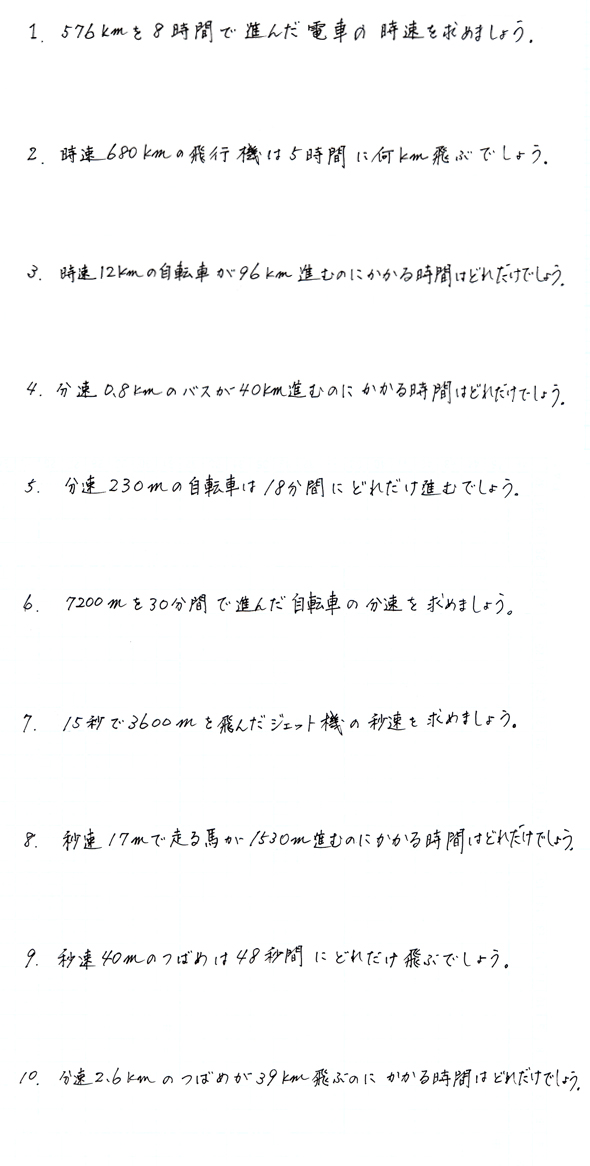 1. 576kmを8時間で進んだ電車の時速を求めましょう.
2. 時速680kmの飛行機は5時間に何km飛ぶでしょう.
3. 時速12kmの自転車が96km進むのにかかる時間はどれだけでしょう.
4. 分速0.8kmのバスが40km進むのにかかる時間はどれだけでしょう.
5. 分速230mの自転車は18分間にどれだけ進むでしょう.
6. 7200mを30分間で進んだ自転車の分速を求めましょう。
7. 15秒で3600mを飛んだジェット機の秒速を求めましょう。
8. 秒速17mで走る馬が1530m進むのにかかる時間はどれだけでしょう.
9. 秒速40mのつばめは48秒間にどれだけ飛ぶでしょう。
10. 分速2.6kmのつばめが39km飛ぶのにかかる時間はどれだけでしょう.